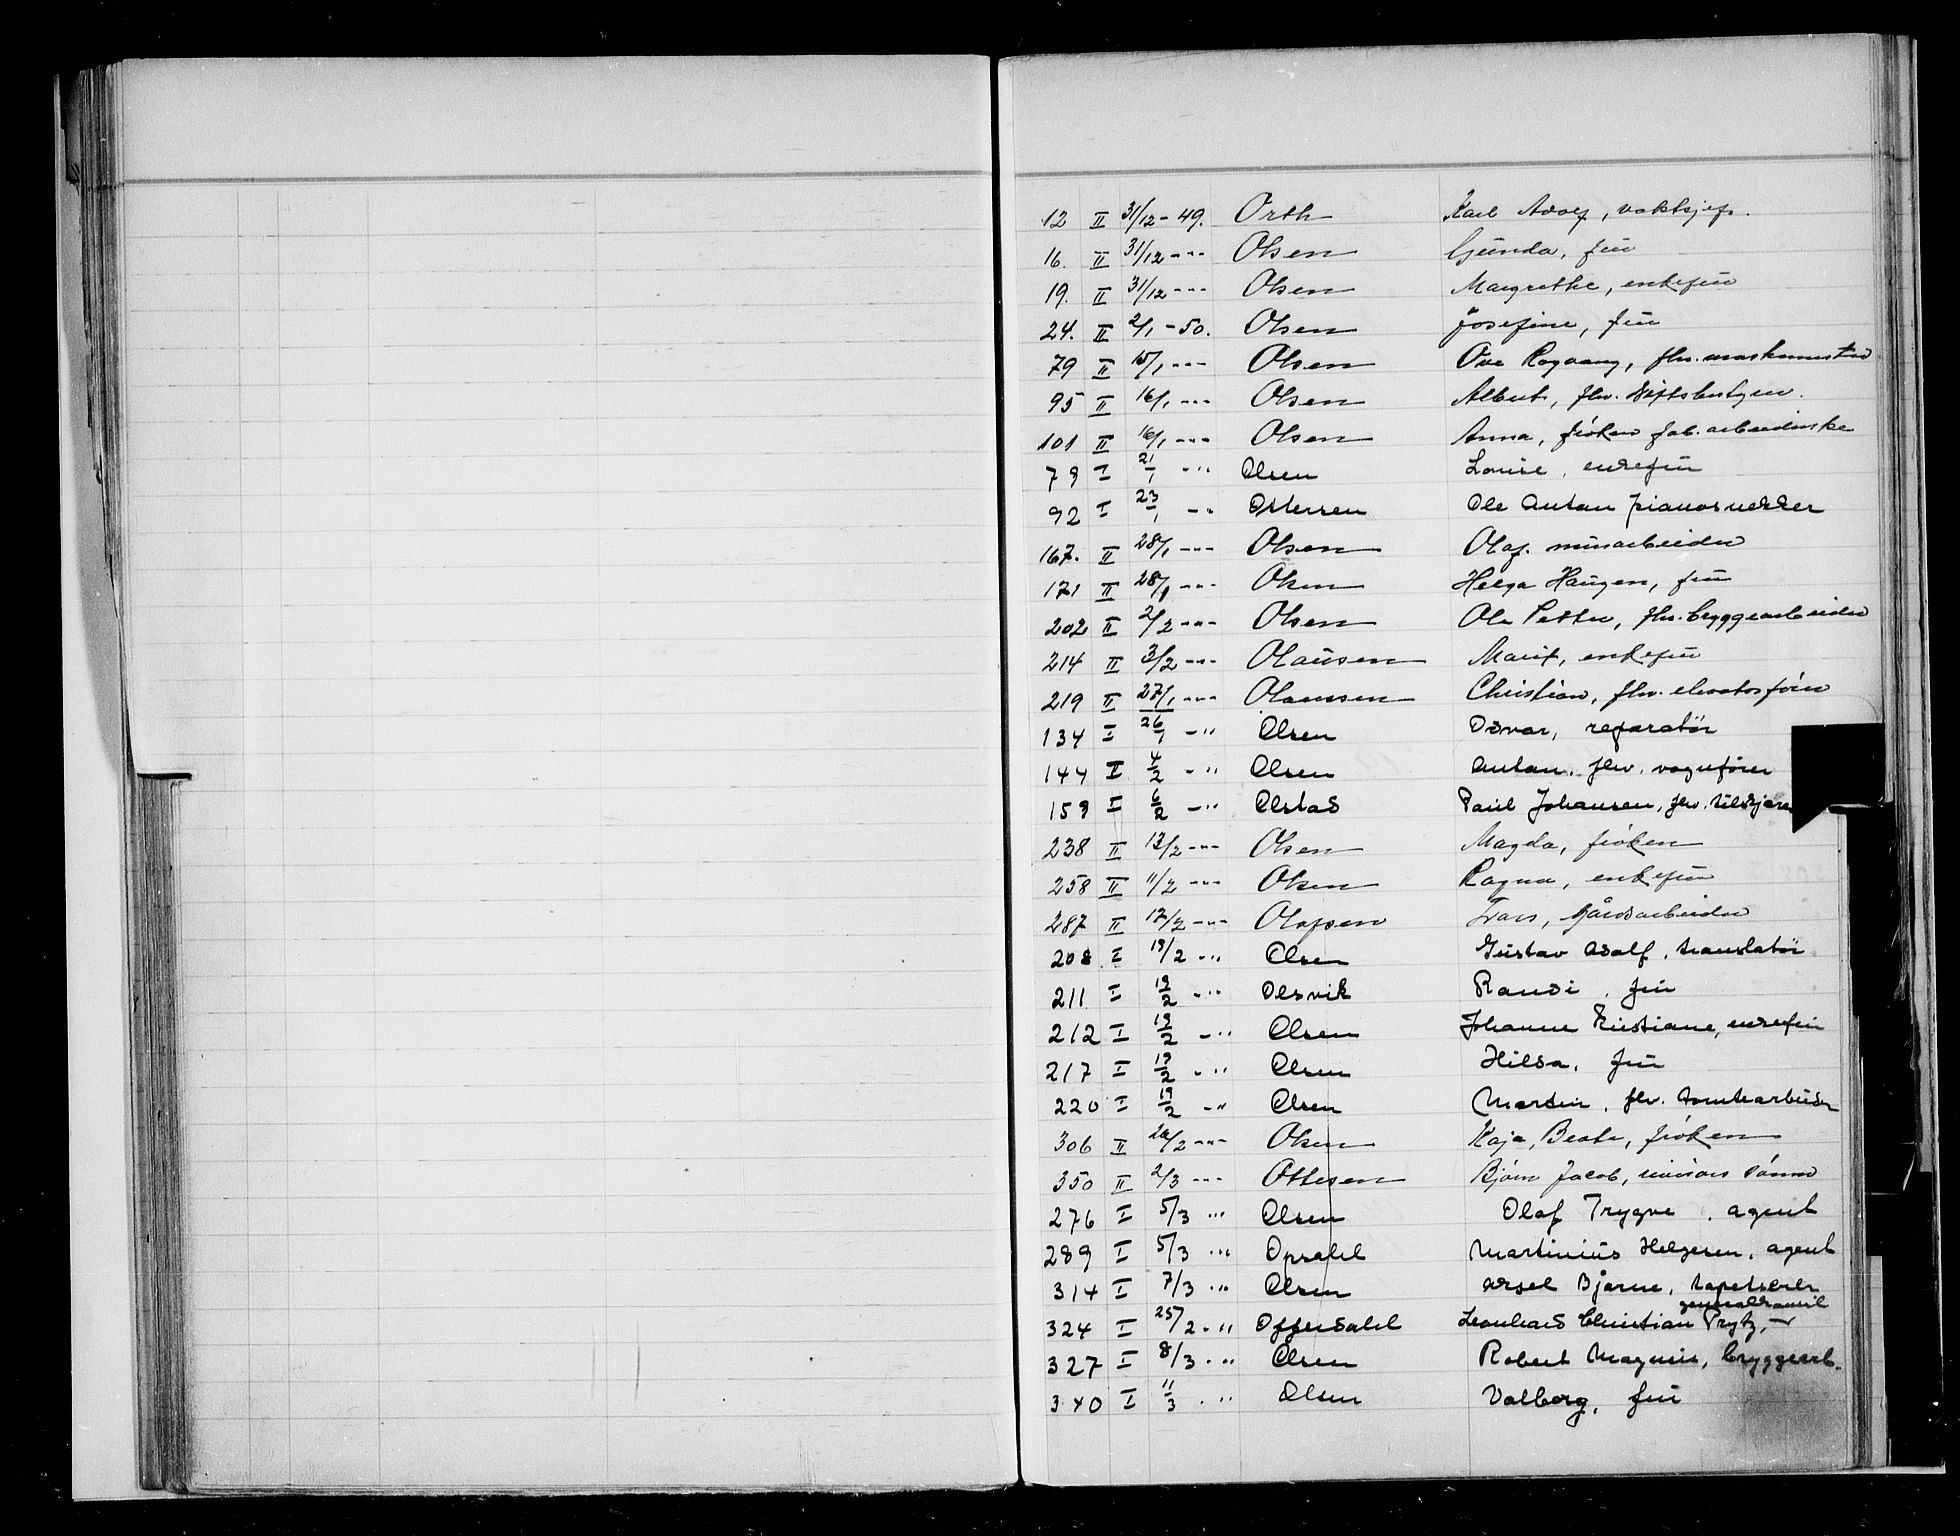 12 II 31/12 - 49. Orth Karl Adolf, vaktsjef.
16. II 31/12 -"- Olsen Gunda, frü
19. II 31/12 -"- Olsen Margrethe, enkefrü
24. II 2/1 - 50. Olsen Josefine, frü
79 II 15/1 -"- Olsen Ove Rogvang, fhv. maskinmester
95 II 16/1 -"- Olsen Albert, fhv. driftsbestyrer.
101 II 16/1 -"- Olsen Anna, frøken fab. arbeiderske
79 I 21/1 -" Olsen Louise, enkefrü
92 I 23/1 -" Ottersen Ole Anton pianosnekker
167. II 28/1 -"- Olsen Olaf. mürarbeider
171 II 28/1 -"- Olsen Helga Haugen, frü
202 II 2/2 -"- Olsen Ole Petter, fhv. bryggearbeider
214 II 3/2 -"- Olaüsen Marit, enkefrü
219 II 27/1 -"- Olaussen Christian, fhv. elevatorfører
134 I 26/1 -" Olsen Osvar, reparatør
144 I 4/2 -" Olsen Anton. fhv. vognfører
159 I 6/2 -" Olstad Paül Johansen, fhv.
238 II 13/2 -"- Olsen Magda, frøken
258 II 11/2 -"- Olsen Ragna, enkefrü
287 II 17/2 -"- Olafsen Ivars, gårdsarbeider
208 I 19/2 -" Olsen Gustav Adolf, translatør
211 I 19/2 -" Olsvik Randi, frü
212 I 19/2 -" Olsen Johanne Kristiane, enkefrü
217 I 19/2 -" Olsen Hilda, frü
220 I 19/2 -" Olsen Martin, fhv. tomtearbeider
306 II 20/2 -"- Olsen Kaja Beate, frøken
350 II 2/3 -"- Ottesen Bjørn Jacob,
276 I 5/3 -" Olsen Olaf Trygve, agent
289 I 5/3 -" Opsahl Martinius Helgesen, agent
314 I 7/3 -" Olsen Aksel Bjarne, tapetserer
generalkonsul
324 I 25/2 -" Offersdahl Leonhard Christian Prytz,
327 I 8/3 -" Olsen Robert Magnus, bryggearb.
340 I 11/3 -" Olsen Valborg, frü